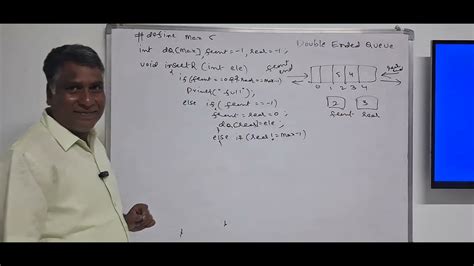 # define Max 5
int dq[Max], front=-1, rear=-1;
Double Ended Queue
void insertR (int ele)
{
if(front==0 && rear==max-1)
Printf("full");
else if(front==-1)
front=rear=0;
dq[rear]=ele;
else if(rear!=max-1)
front end
5 4
rear end
0 1 2 3 4
2 3
front rear